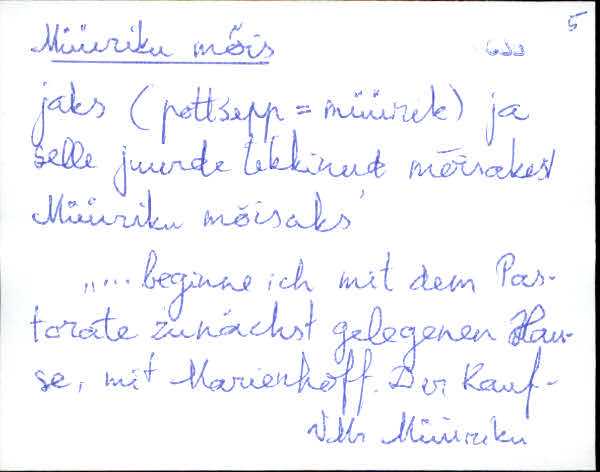 5
Müüriku mõis
jaks (pottsepp = müürek) ja
selle juurde tekkinud mõisakest
Müüriku mõisaks'
„... beginne ich mit dem Pas-
torate zunächst gelegenen Hau-
se, mit Marienhoff. Der Kauf-
VMr Müüriku